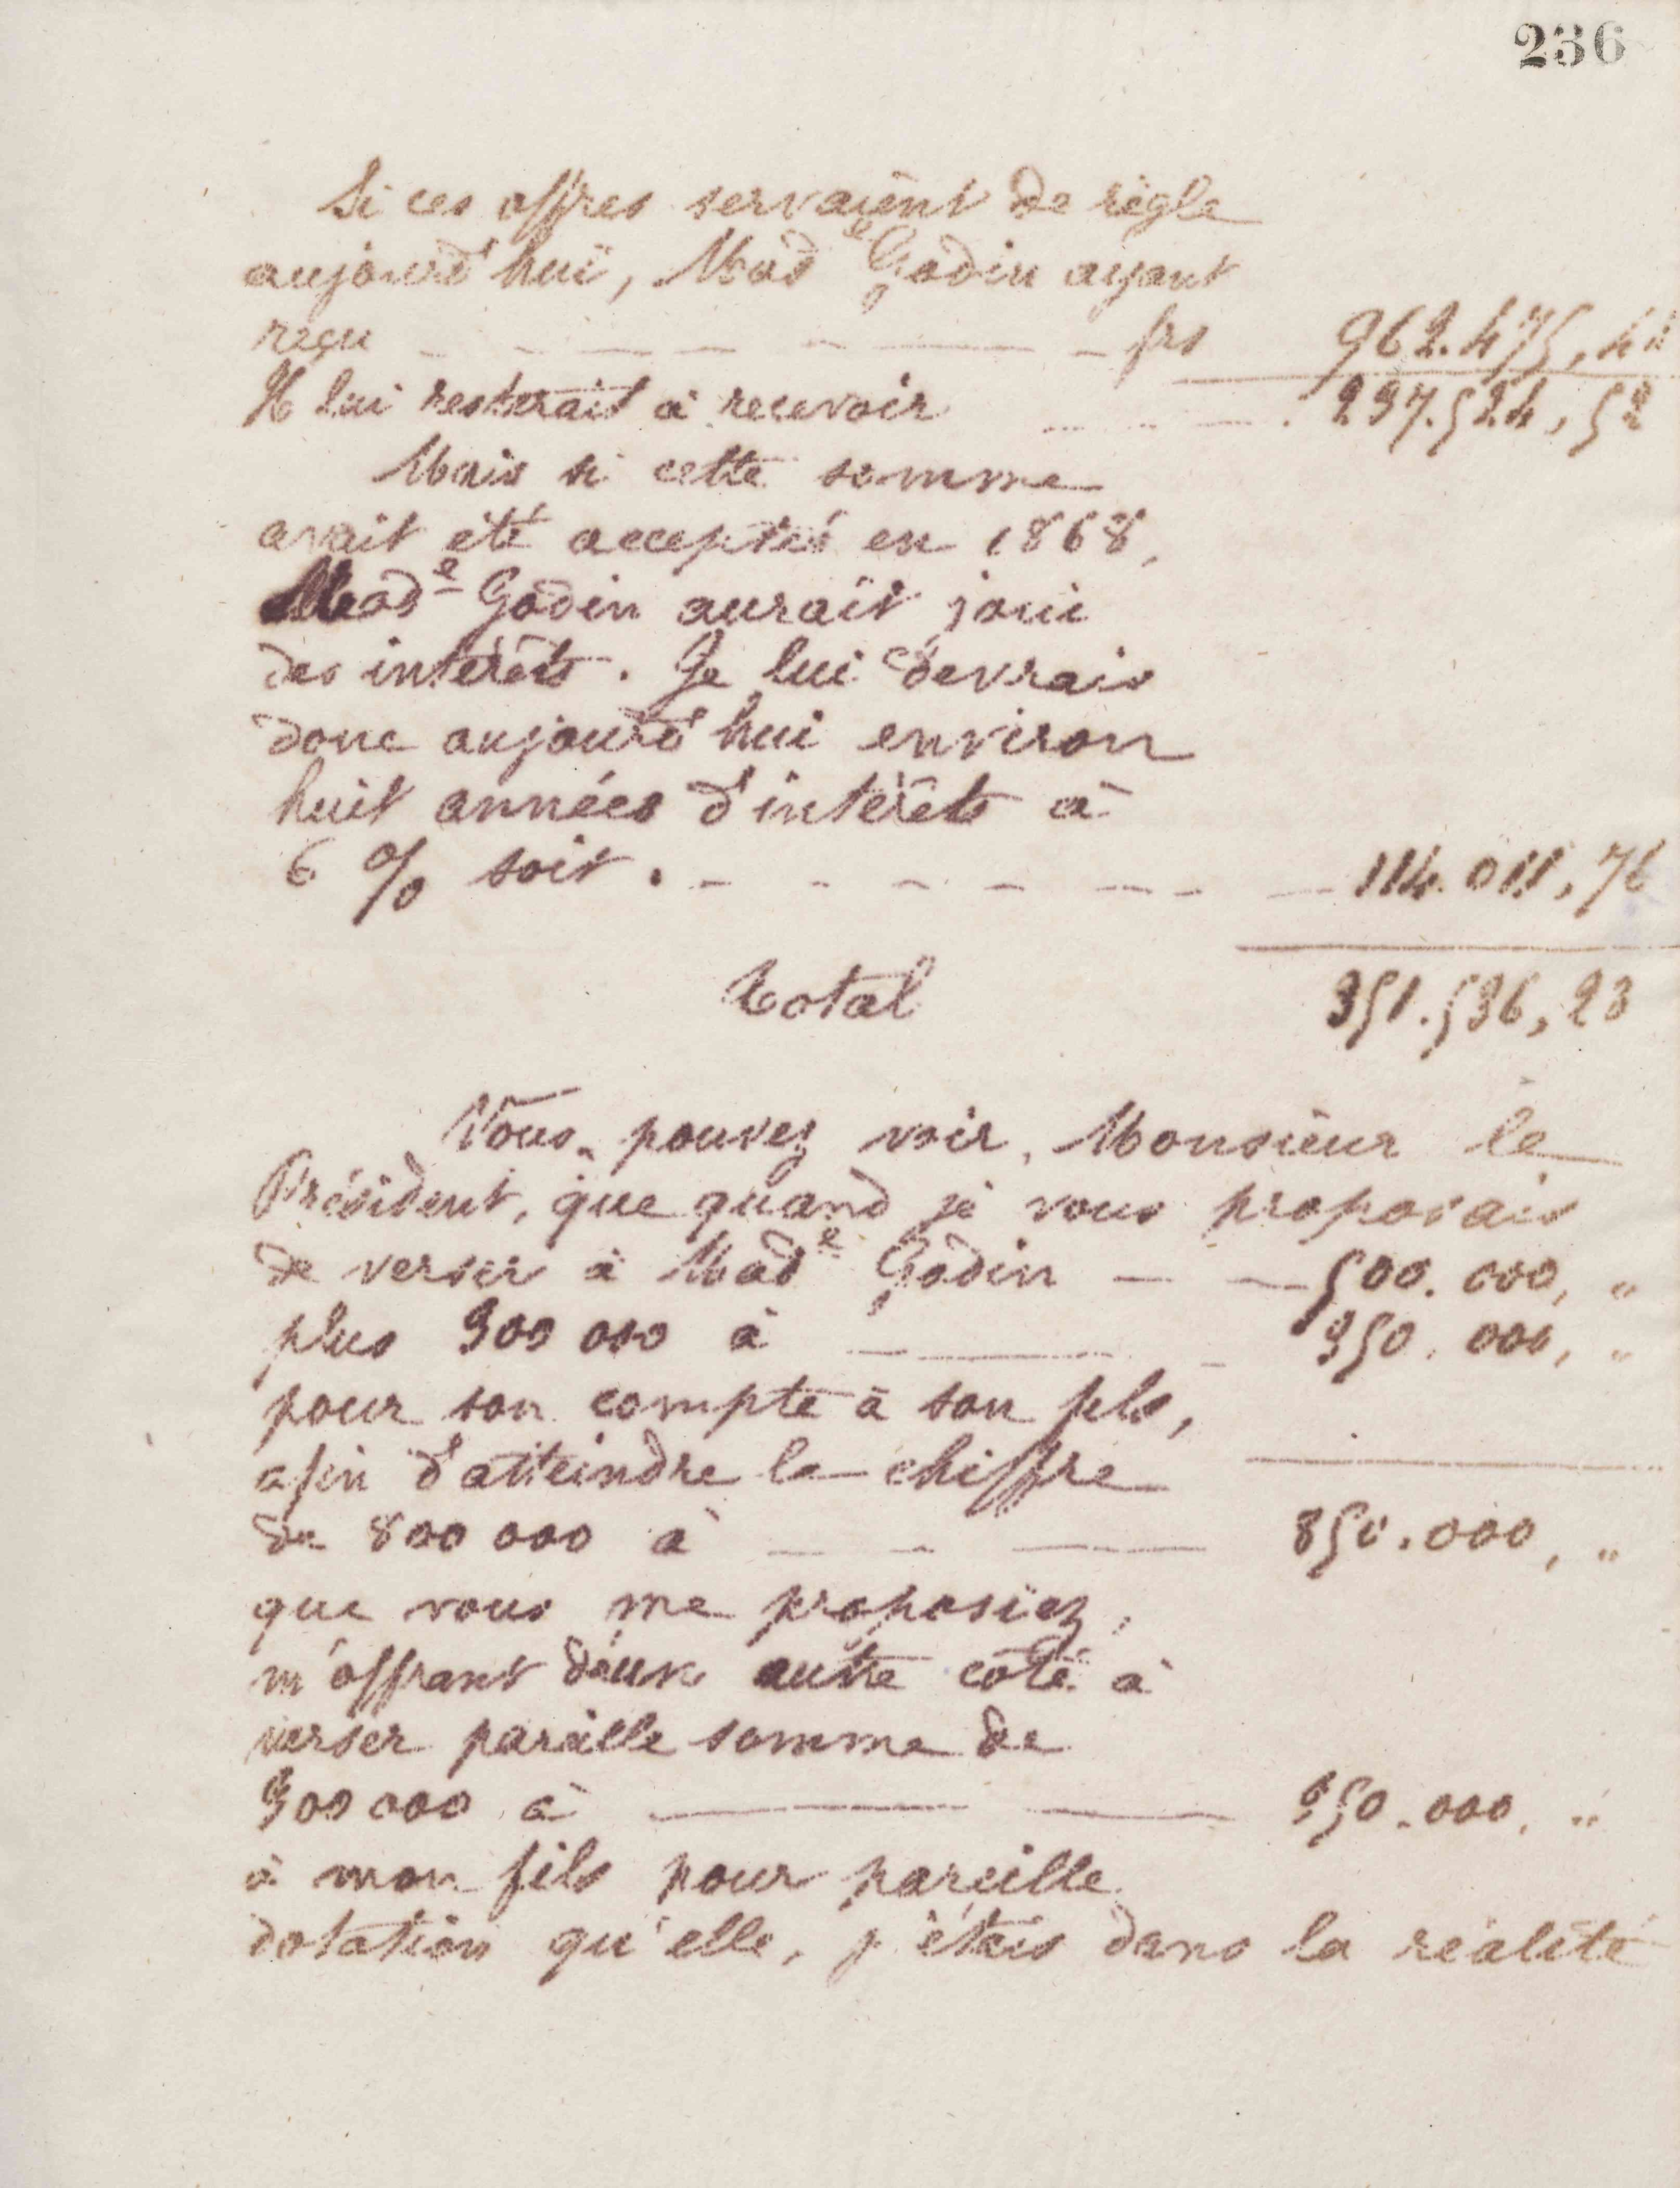 236
Si ces offres servaient de règle
aujourd'hui, Made Godin ayant
reçu - - - - - - frs 362.475,48
Il lui resterait à recevoir - - - 237.524,52
Mais si cette somme
avait été acceptée en 1868,
Made Godin aurait joui
des intérêts. Je lui devrais
donc aujourd'hui environ
huit années d'intérêts à
6 % soit. - - - - - - - 114.011,76
Total 351.536,28
Vous pouvez voir, Monsieur le
Président, que quand je vous proposais
de verser à Made Godin - - 500.000, "
plus 300 000 à - - - 350.000, "
pour son compte à son fils,
afin d'atteindre le chiffre
de 800 000 à - - - 850.000, "
que vous me proposiez,
m'offrant d'un autre côté à
verser pareille somme de
300 000 à - - 350.000, "
à mon fils pour pareille
dotation qu'elle, j'étais dans la réalité